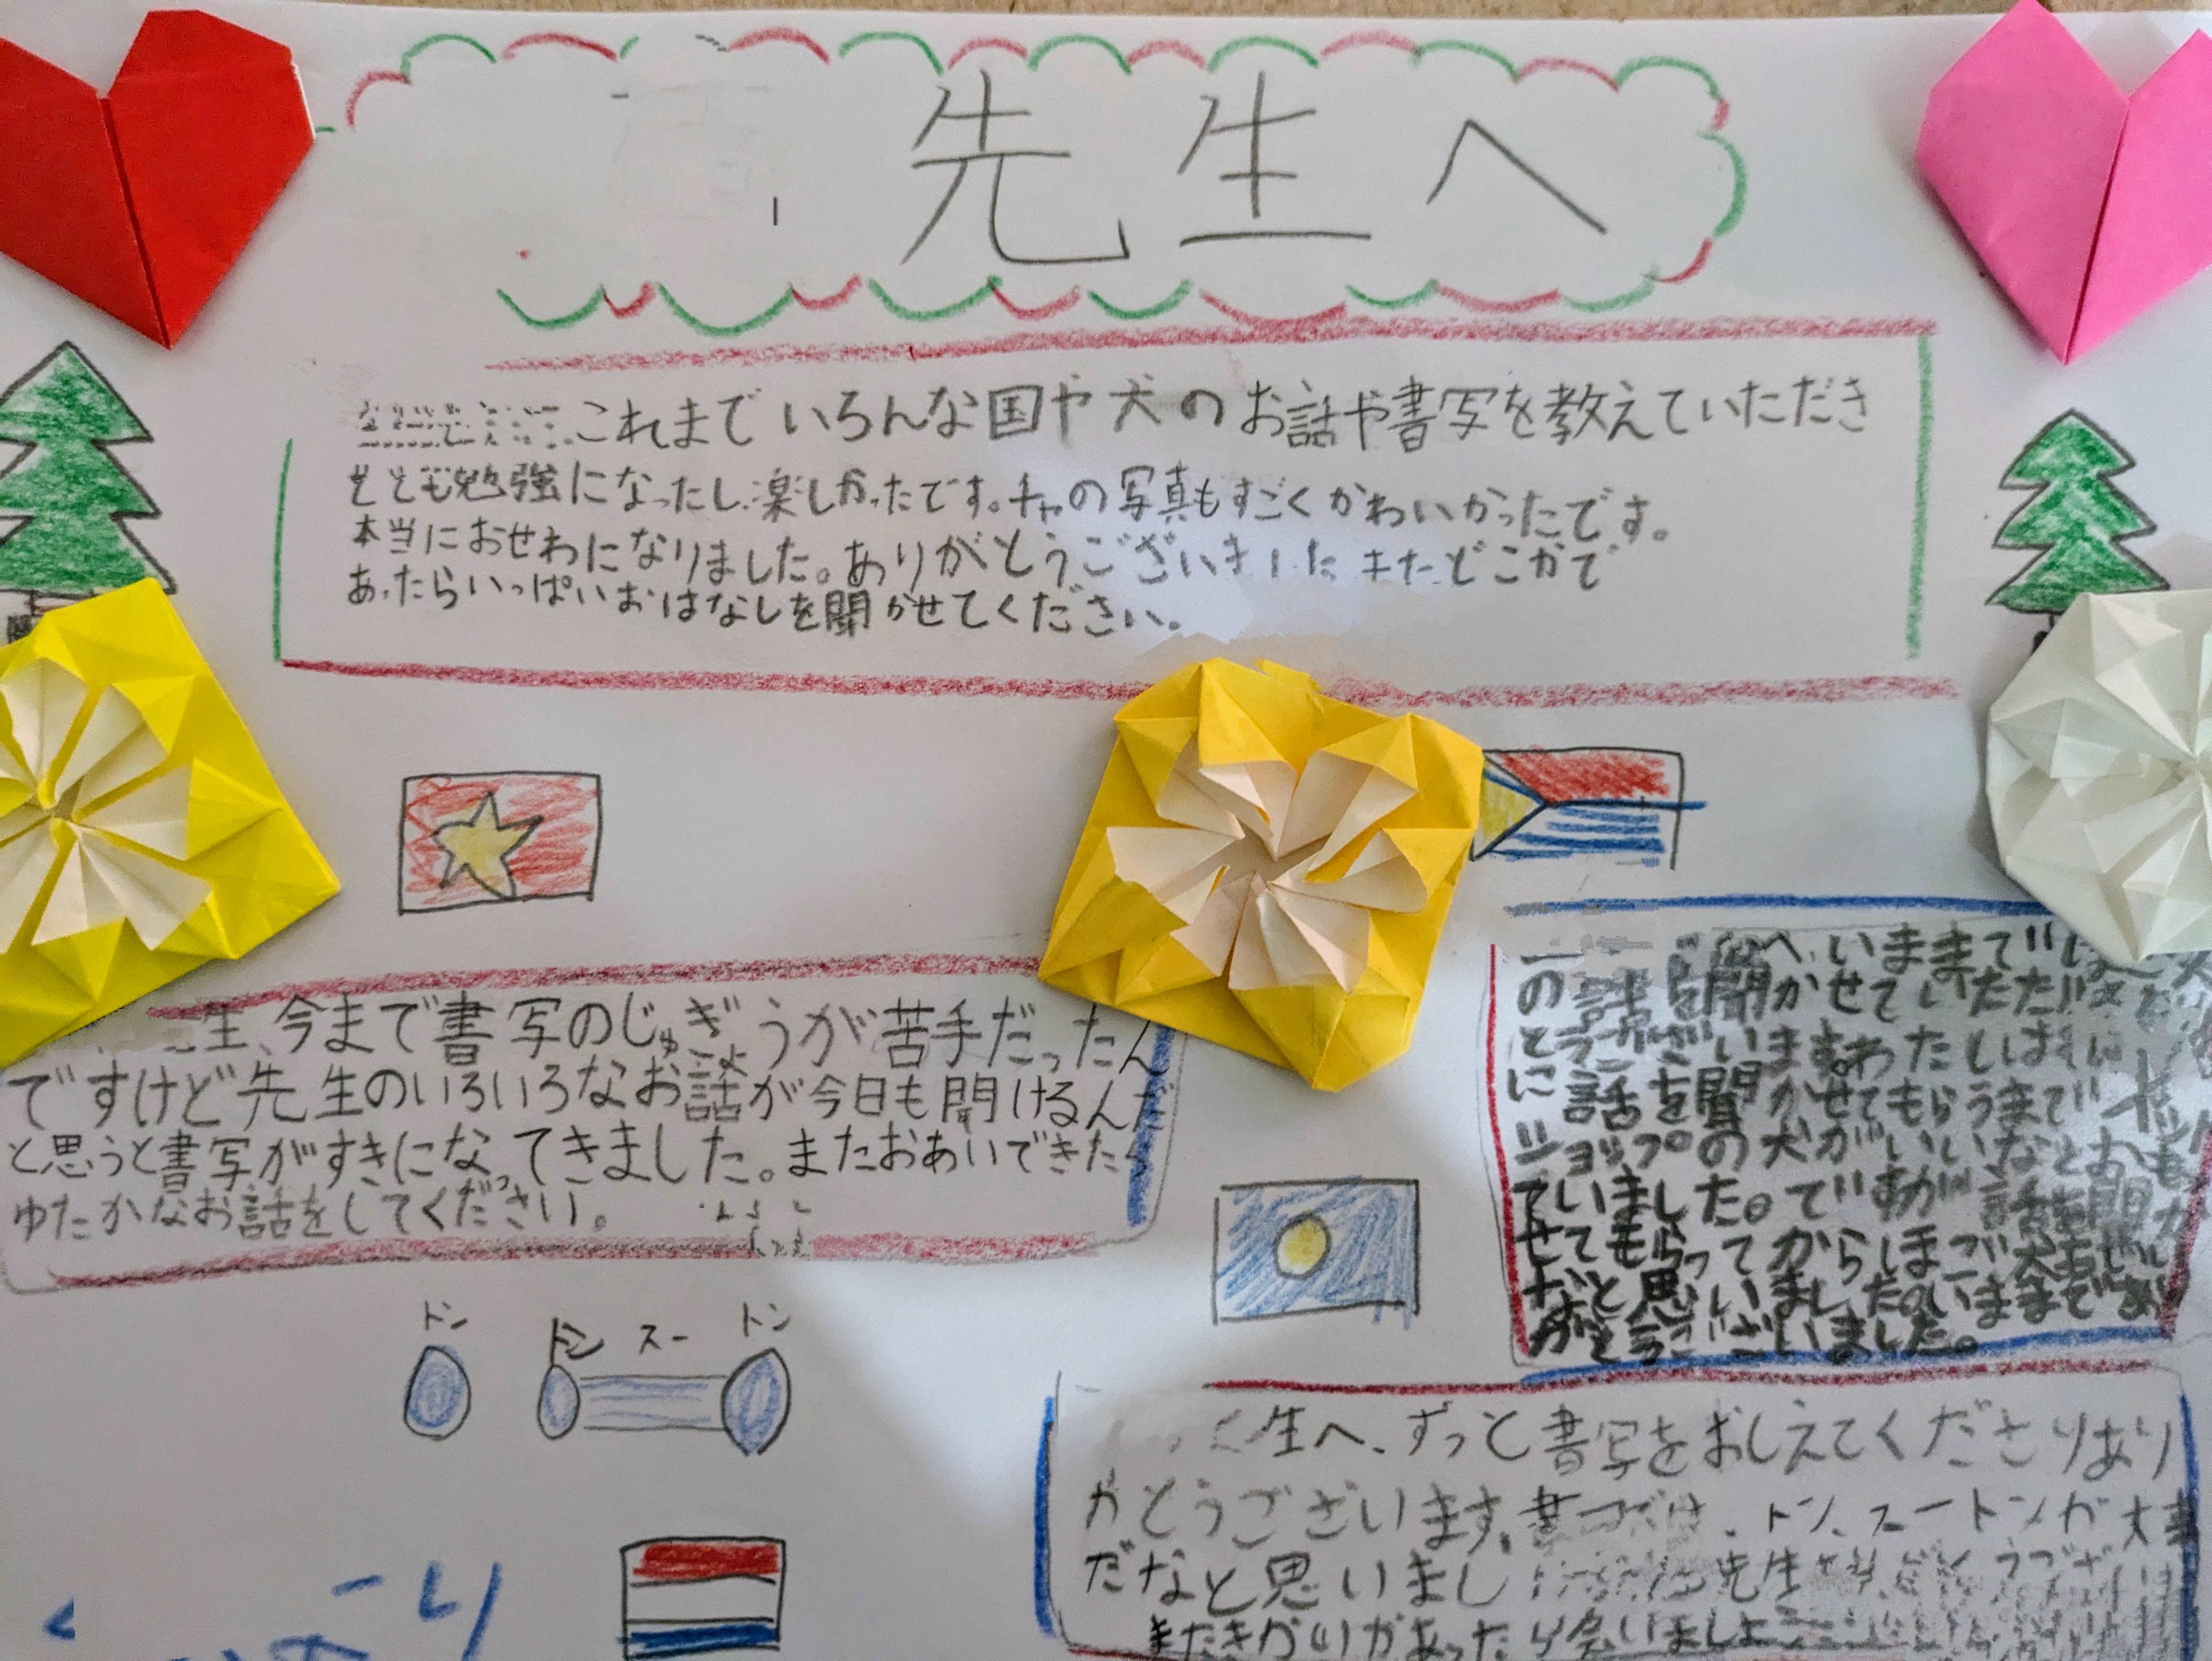 先生へ
これまでいろんな国や犬のお話や書写を教えていただき
とても勉強になったし楽しかったです。チャの写真もすごくかわいかったです。
本当におせわになりました。ありがとうございましたまたどこかで
あったらいっぱいおはなしを聞かせてください。
生、今まで書写のじゅぎょうが苦手だったん
ですけど先生のいろいろなお話が今日も聞けるんだ
と思うと書写がすきになってきました。またおあいできたら
ゆたかなお話をしてください。
へ、いままで
の話を聞かせていただ
とうございます。わたしは
に話を聞かせてもらうまで
ショップの犬がいいなとお
ていました。ですが話を聞か
せてもらってからほご犬も
だなと思いました。いままであ
がとうございました。
トン
トン スー トン
生へ、ずっと書写をおしえてくださりあり
がとうございます。書 トン、スートンが大事
だなと思いまし 先生
またきかいがあったら会いましょ